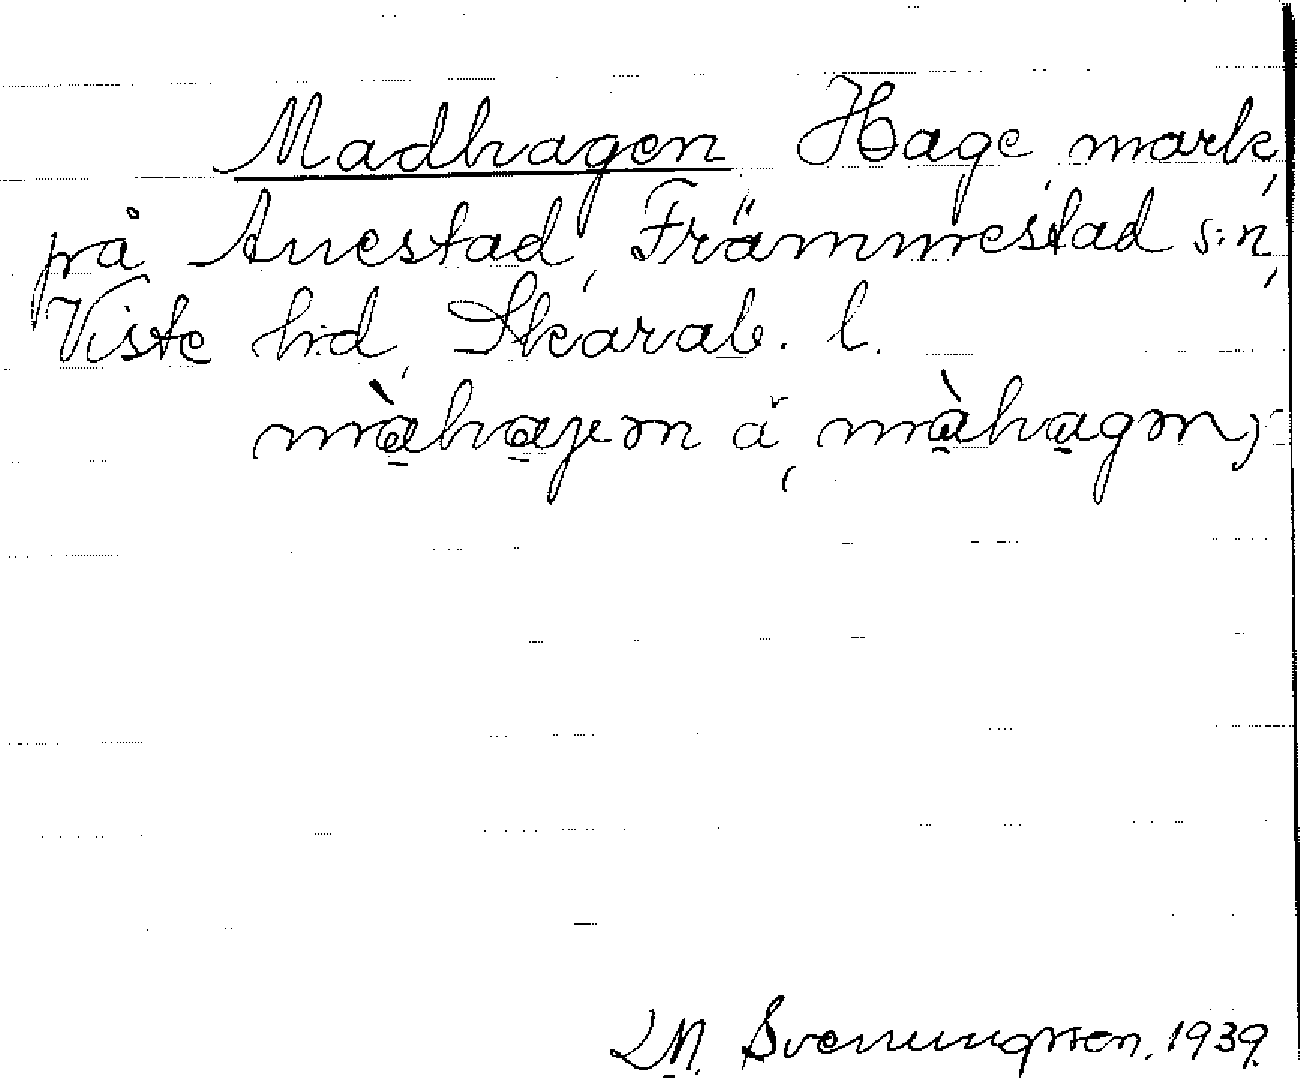 Madhagen Hage, mark,
på Anestad, Främmestad s:n,
Viste h:d, Skarab. l.
màhajen å, màhagen,
L M. Svenungsson. 1939.